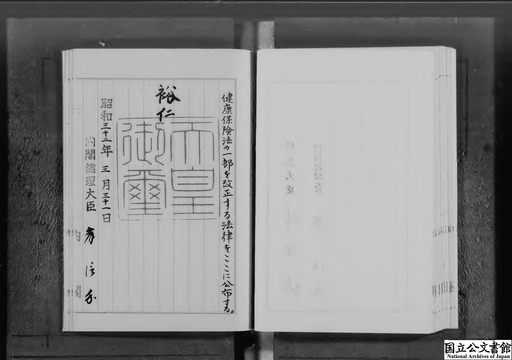 健康保険法の一部を改正する法律をここに公布する。
裕仁
天皇
御璽
昭和三十二年三月三十一日
内閣総理大臣 岸信介
国立公文書館
National Archives of Japan